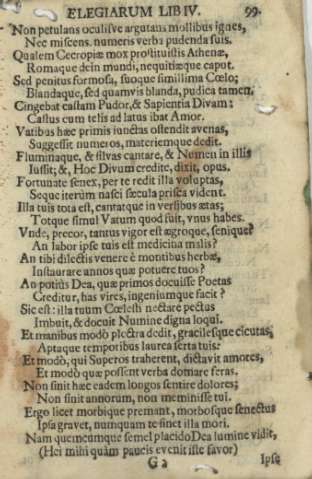 ELEGIARUM LIB IV. 99.
Non petulans oculisve argutans mollibus ignes,
Nec miscens numeris verba pudenda suis.
Qualem Cecropiæ mox prostituistis Athenæ,
Romaque dein mundi, nequitiæque caput.
Sed penitus formosa, suoque simillima Cœlo;
Blandaque, sed quamvis blanda, pudica tamen.
Cingebat castam Pudor, & Sapientia Divam:
Castus cum telis ad latus ibat Amor.
Vatibus hæc primis iunctas ostendit avenas,
Suggessit numeros, materiemque dedit.
Fluminaque, & silvas cantare, & Numen in illis
Iussit; &, Hoc Divum credite, dixit, opus.
Fortunate senex, per te redit illa voluptas,
Seque iterùm nasci sæcula prisca vident.
Illa tuis tota est, cantatque in versibus ætas;
Totque simul Vatum quod fuit, vnus habes.
Vnde, precor, tantus vigor est ægroque, senique?
An labor ipse tuis est medicina malis?
An tibi dilectis venere è montibus herbæ,
Instaurare annos quæ potuere tuos?
An potiùs Dea, quæ primos docuisse Poetas
Creditur, has vires, ingeniumque facit?
Sic est: illa tuum Cœlesti nectare pectus
Imbuit, & docuit Numine digna loqui.
Et manibus modò plectra dedit, gracilesque cicutas,
Aptaque temporibus laurea serta tuis:
Et modò, qui Superos traherent, dictavit amores,
Et modò quæ possent verba domare feras.
Non sinit hæc eadem longos sentire dolores;
Non sinit annorum, non meminisse tui.
Ergo licet morbique premant, morbosque senectus
Ipsa gravet, numquam te sinet illa mori.
Nam quemcumque semel placido Dea lumine vidit,
(Hei mihi quàm paucis evenit iste favor)
G 2 Ipse